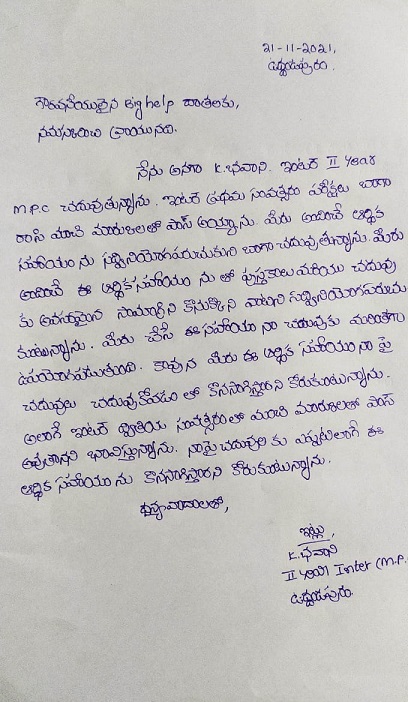 21-11-2021,
ఉద్దండపురం.
గౌరవనీయులైన Big help దాతలకు,
నమస్కరించి వ్రాయునది.
నేను అనగా K.భవాని. ఇంటర్ II Year
M.P.C చదువుతున్నాను. ఇంటర్ ప్రథమ సంవత్సరం పరీక్షలు బాగా
రాసి మంచి మార్కులలతో పాస్ అయ్యాను. మీరు అందించే ఆర్థిక
సహాయం ను సద్వినియోగపరుచుకుని బాగా చదువుతున్నాను. మీరు
అందించే ఈ ఆర్థిక సహాయం ను తో పుస్తకాలు మరియు చదువు
కు అవసరమైన సామాగ్రిని కొనుక్కొని వాటిని సద్వినియోగపరుచు
కుంటున్నాను. మీరు చేసే ఈ సహాయం నా చదువుకు మరింతగా
ఉపయోగపడుతుంది. కావున మీరు ఈ ఆర్థిక సహాయం నా పై
చదువులు చదువుకోవడం లో కొనసాగిస్తారని కోరుకుంటున్నాను.
అలాగే ఇంటర్ ద్వితీయ సంవత్సరంలో మంచి మార్కులతో పాస్
అవుతానని భావిస్తున్నాను. నాపై చదువుల కు ఎప్పటిలాగే ఈ
ఆర్థిక సహాయం ను కొనసాగిస్తారని కోరుకుంటున్నాను.
ధన్యవాదాలతో,
ఇట్లు,
K.భవాని
II Year Inter (M.P.
ఉద్దండపురం.